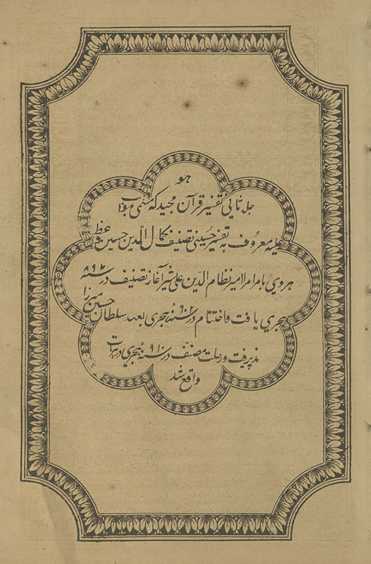 هو
جلد ثانی تفسیر قرآن مجید که مسمی بمواهب
علیه معروف به تفسیر حسینی تصنیف کمال الدین حسین واعظ
هروی بامر امیر نظام الدین علی شیر آغاز تصنیف در ۸۹۷
هجری یافت و اختتام در سنه هجری بعهد سلطان حسین میرزا
پذیرفت و رحلت مصنف در سنه ۹۱۰ هجری در هرات
واقع شد